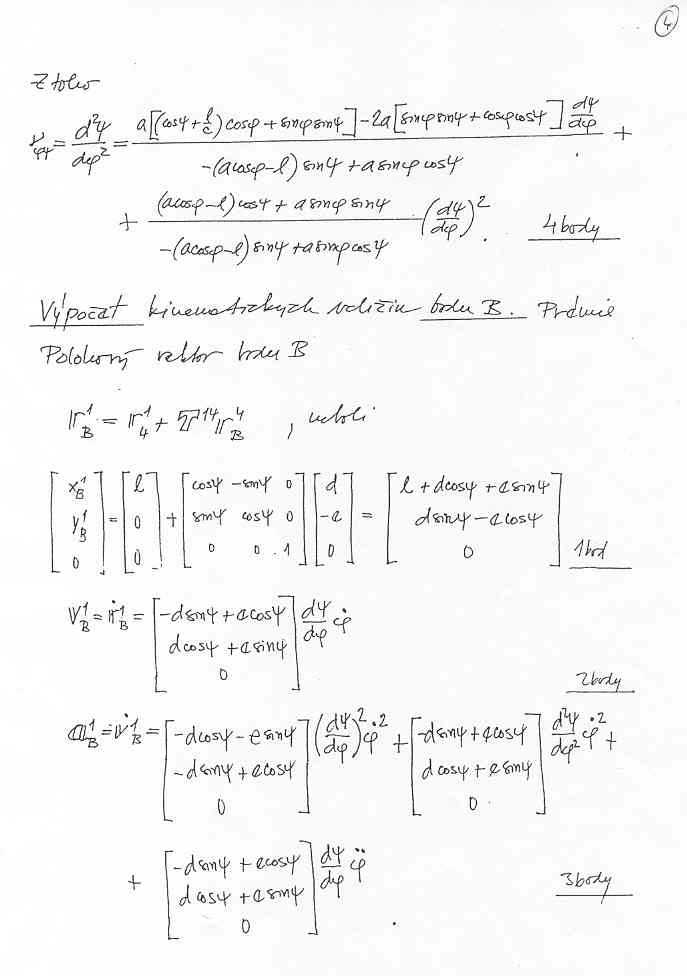 4
Z toho
ν_φψ = d²ψ/dφ² = a[(cosψ + l/c) cosφ + sinφ sinψ] - 2a[sinφ sinψ + cosφ cosψ] dψ/dφ / -(a cosφ - l) sinψ + a sinφ cosψ +
+ (a cosφ - l) cosψ + a sinφ sinψ / -(a cosφ - l) sinψ + a sinφ cosψ (dψ/dφ)². 4 body
Výpočet kinematických veličin bodu B.
Polohový vektor bodu B
r_B^1 = r_4^1 + T^14 r_B^4 , neboli
[x_B^1 y_B^1 0] = [l 0 0] + [cosψ -sinψ 0 sinψ cosψ 0 0 0 1] [d -e 0] = [l + d cosψ + e sinψ d sinψ - e cosψ 0] 1 bod
v_B^1 = ṙ_B^1 = [-d sinψ + e cosψ d cosψ + e sinψ 0] dψ/dφ φ̇
2 body
a_B^1 = v̇_B^1 = [-d cosψ - e sinψ -d sinψ + e cosψ 0] (dψ/dφ)² φ̇² + [-d sinψ + e cosψ d cosψ + e sinψ 0] d²ψ/dφ² φ̇² +
+ [-d sinψ + e cosψ d cosψ + e sinψ 0] dψ/dφ φ̈ 3 body